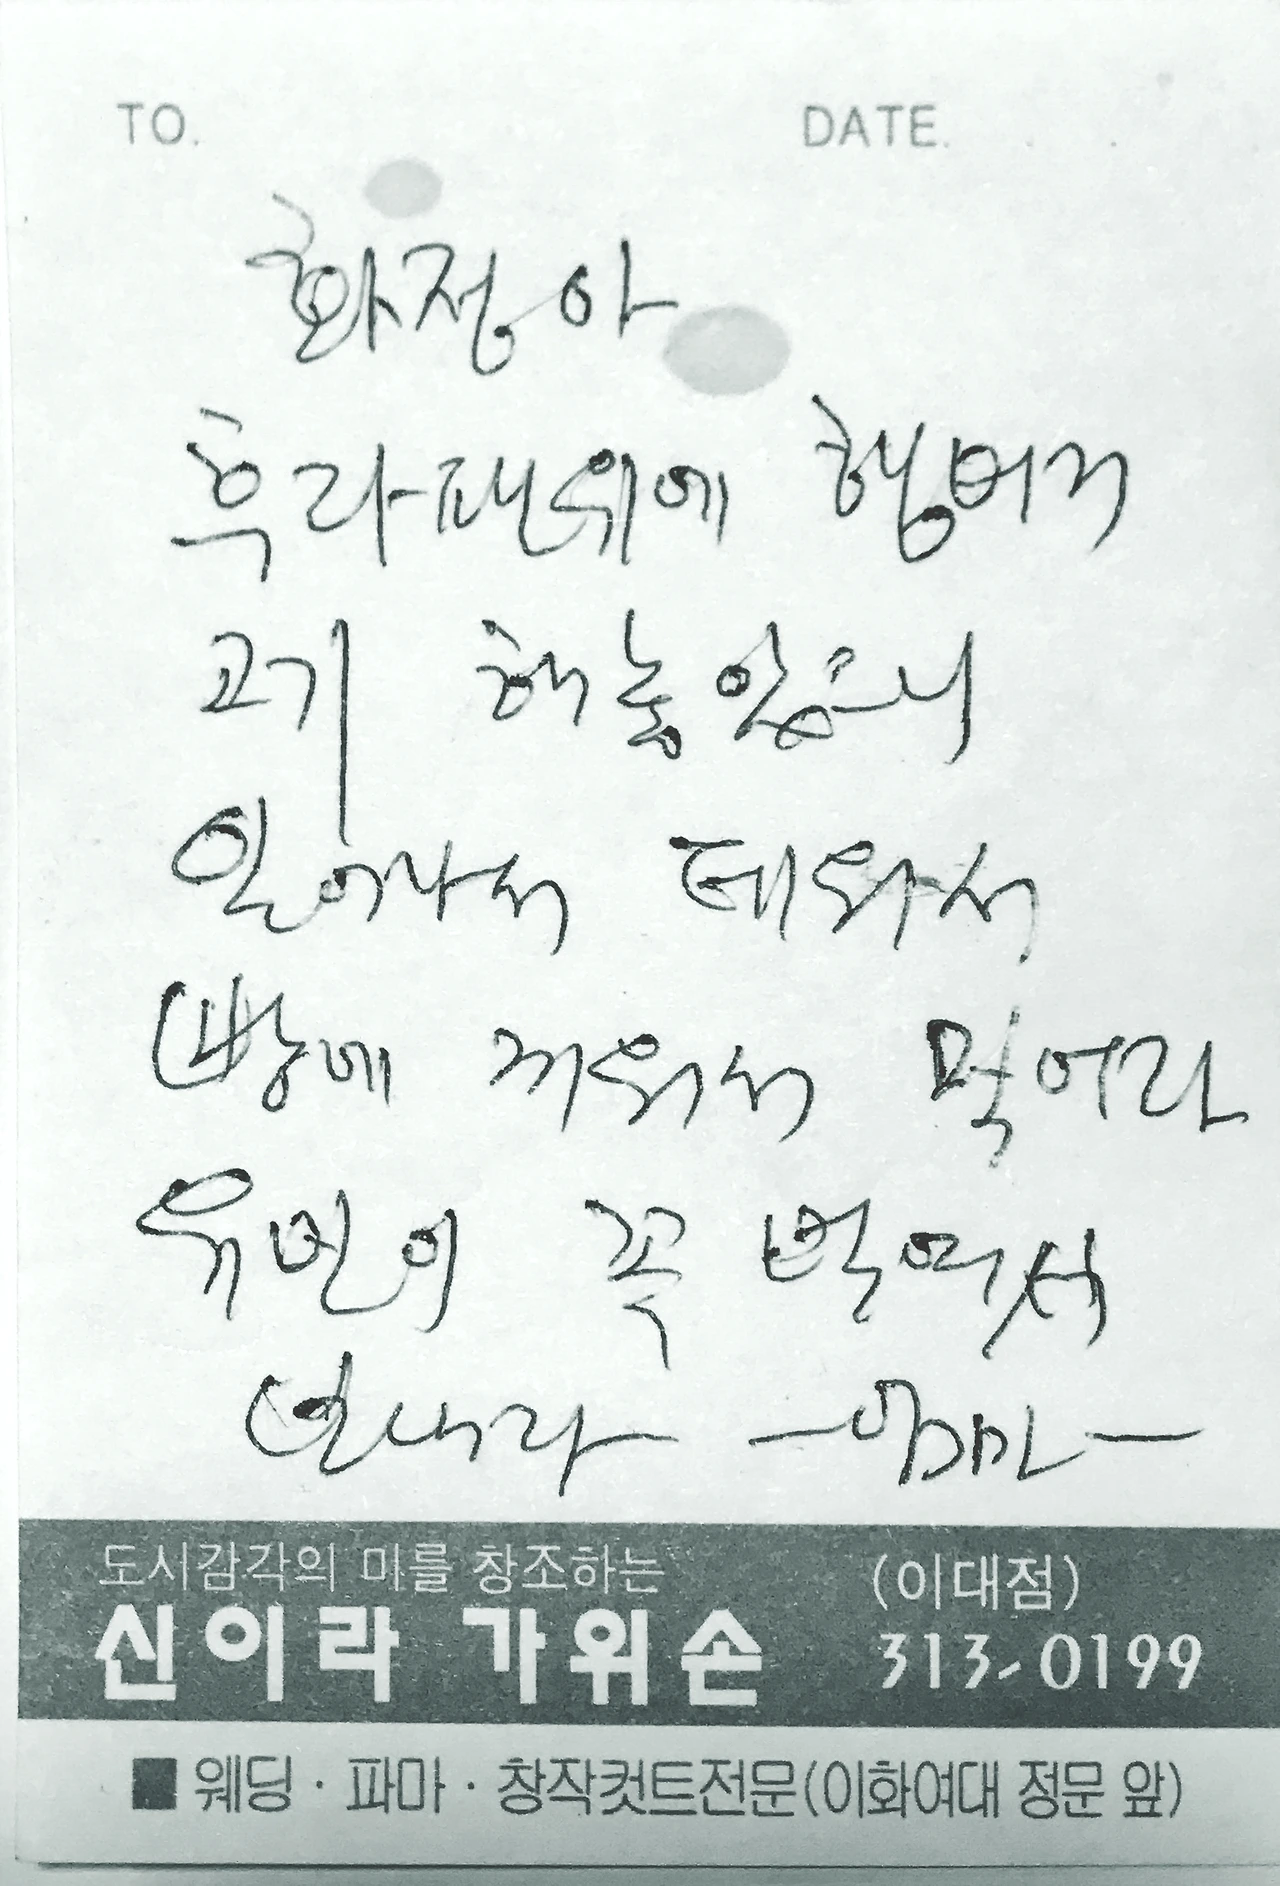 TO. DATE. . .
화정아
후라팬위에 햄버거
고기 해놓았으니
일어나서 데워서
빵에 끼워서 먹어라
유빈이 꼭 먹여서
보내라 -엄마-
도시감각의 미를 창조하는 (이대점)
신이라 가위손 313-0199
■ 웨딩·파마·창작컷트전문(이화여대 정문 앞)